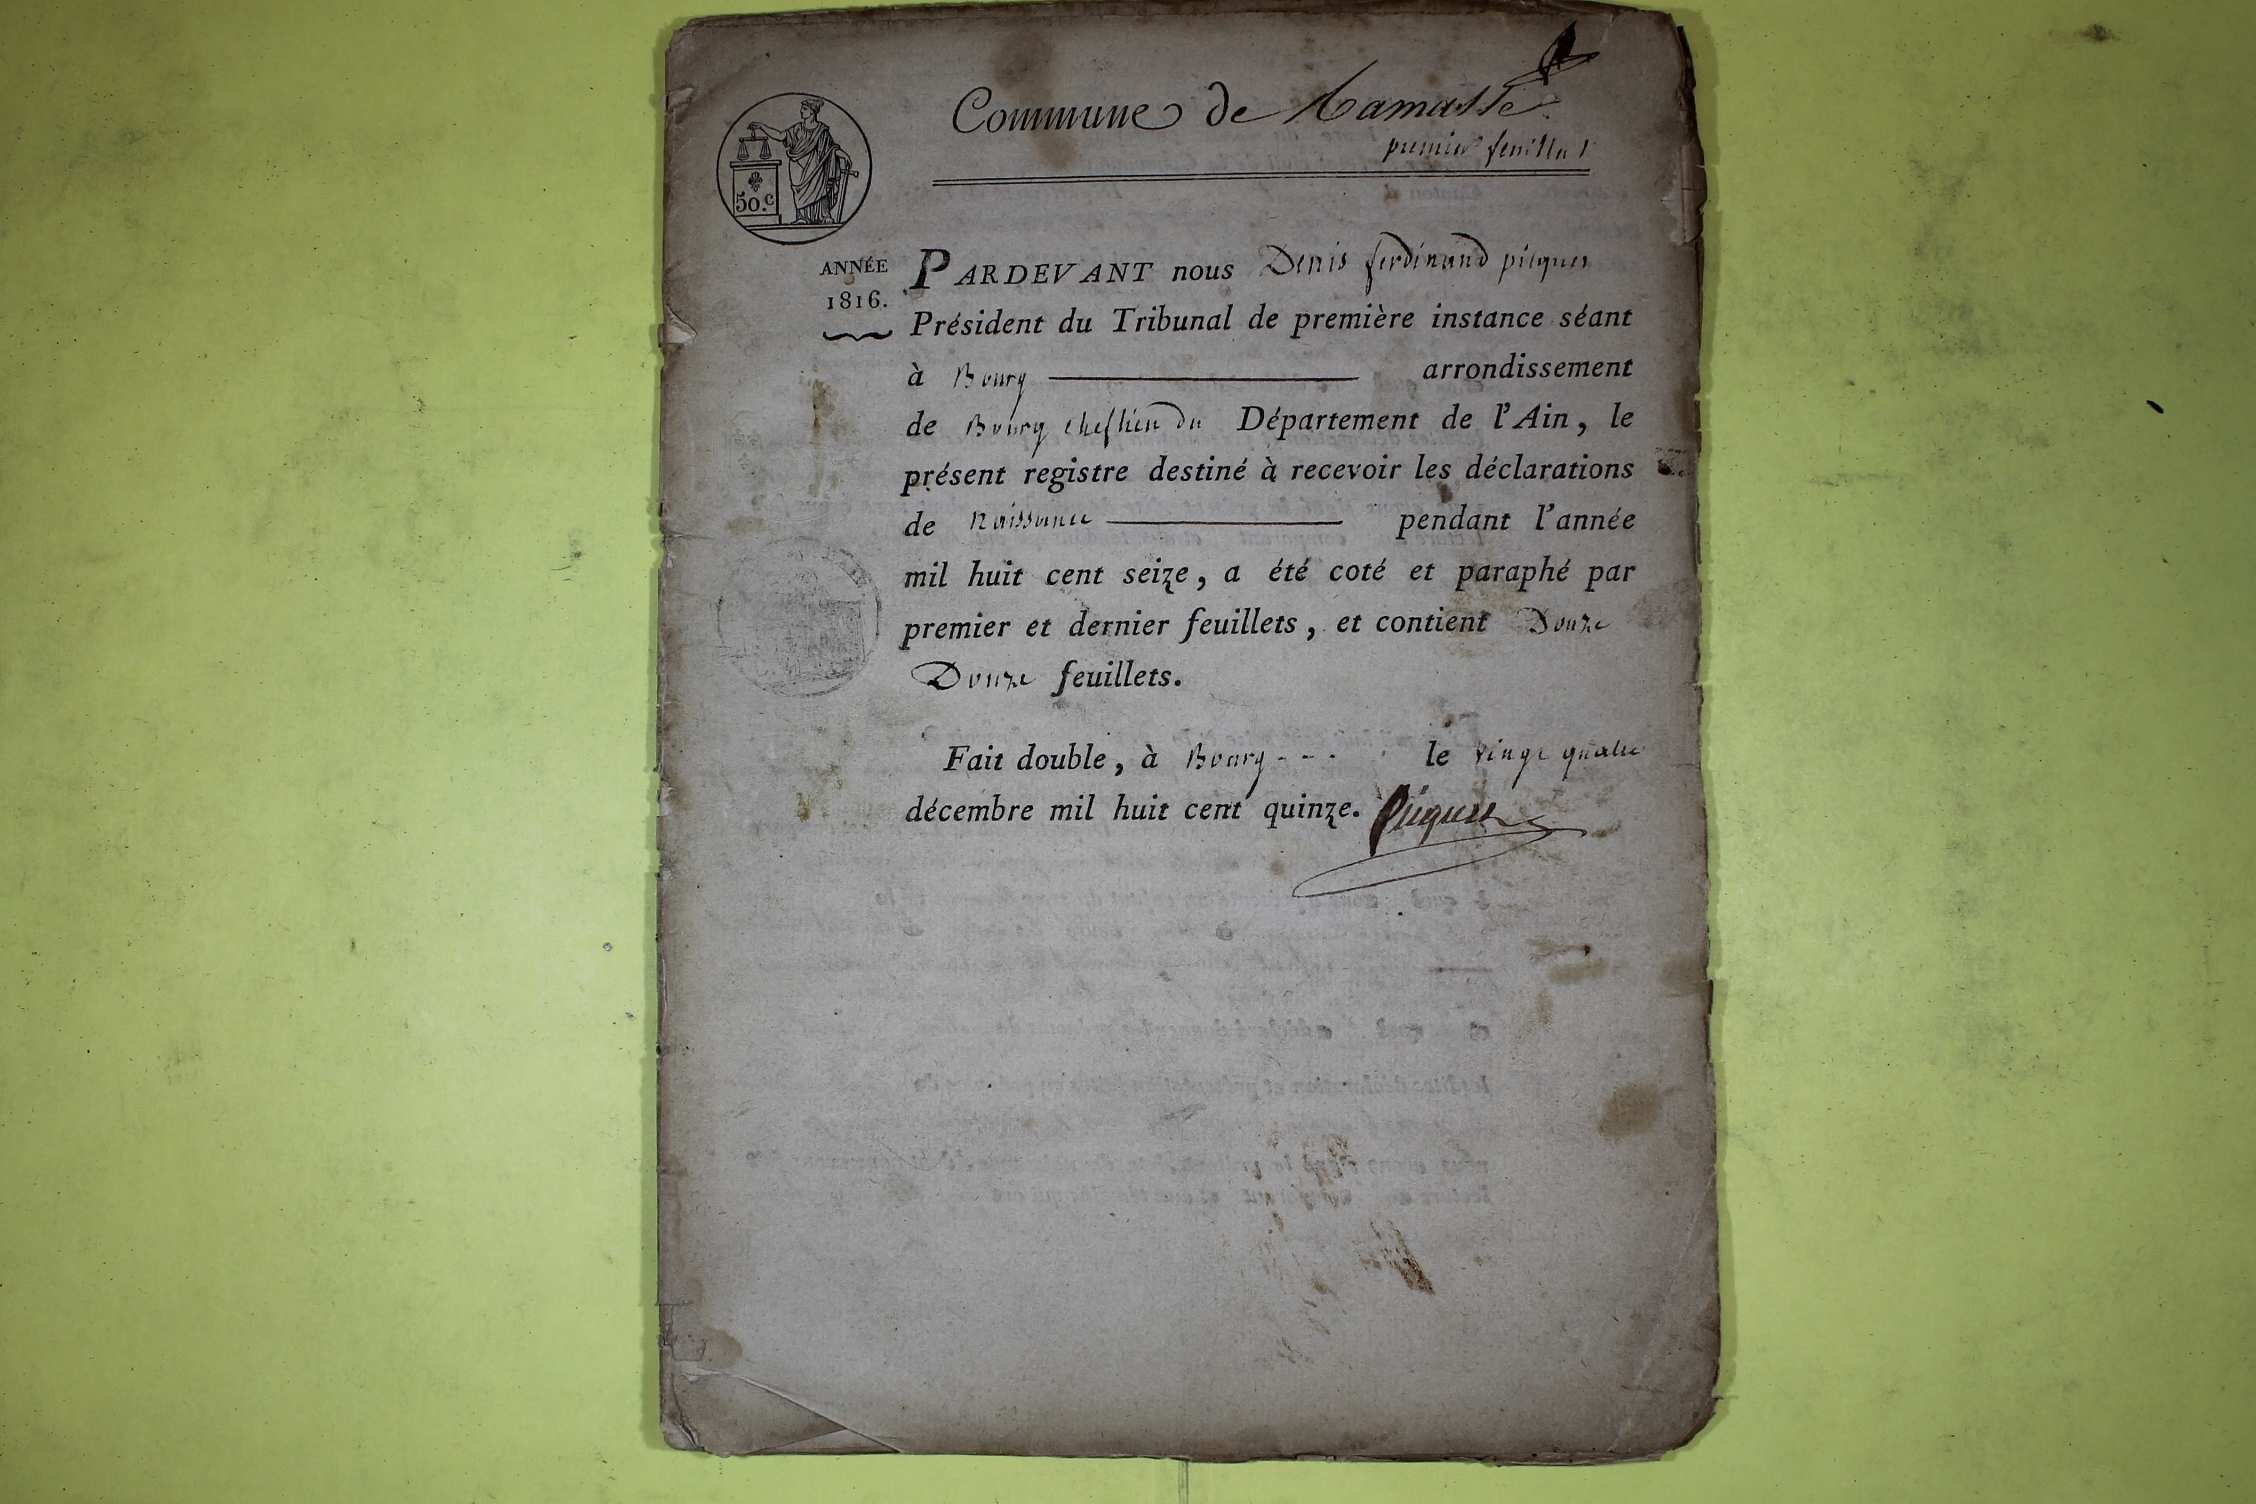 Commune de Ramasse
premier feuillet
50.c
ANNÉE
1816.
PARDEVANT nous Denis ferdinand piquet
Président du Tribunal de première instance séant
à Bourg arrondissement
de Bourg cheflieu du Département de l'Ain, le
présent registre destiné à recevoir les déclarations
de Naissance pendant l'année
mil huit cent seize, a été coté et paraphé par
premier et dernier feuillets, et contient Douze
Douze feuillets.
Fait double, à Bourg - - - le vingt quatre
décembre mil huit cent quinze. Piquet